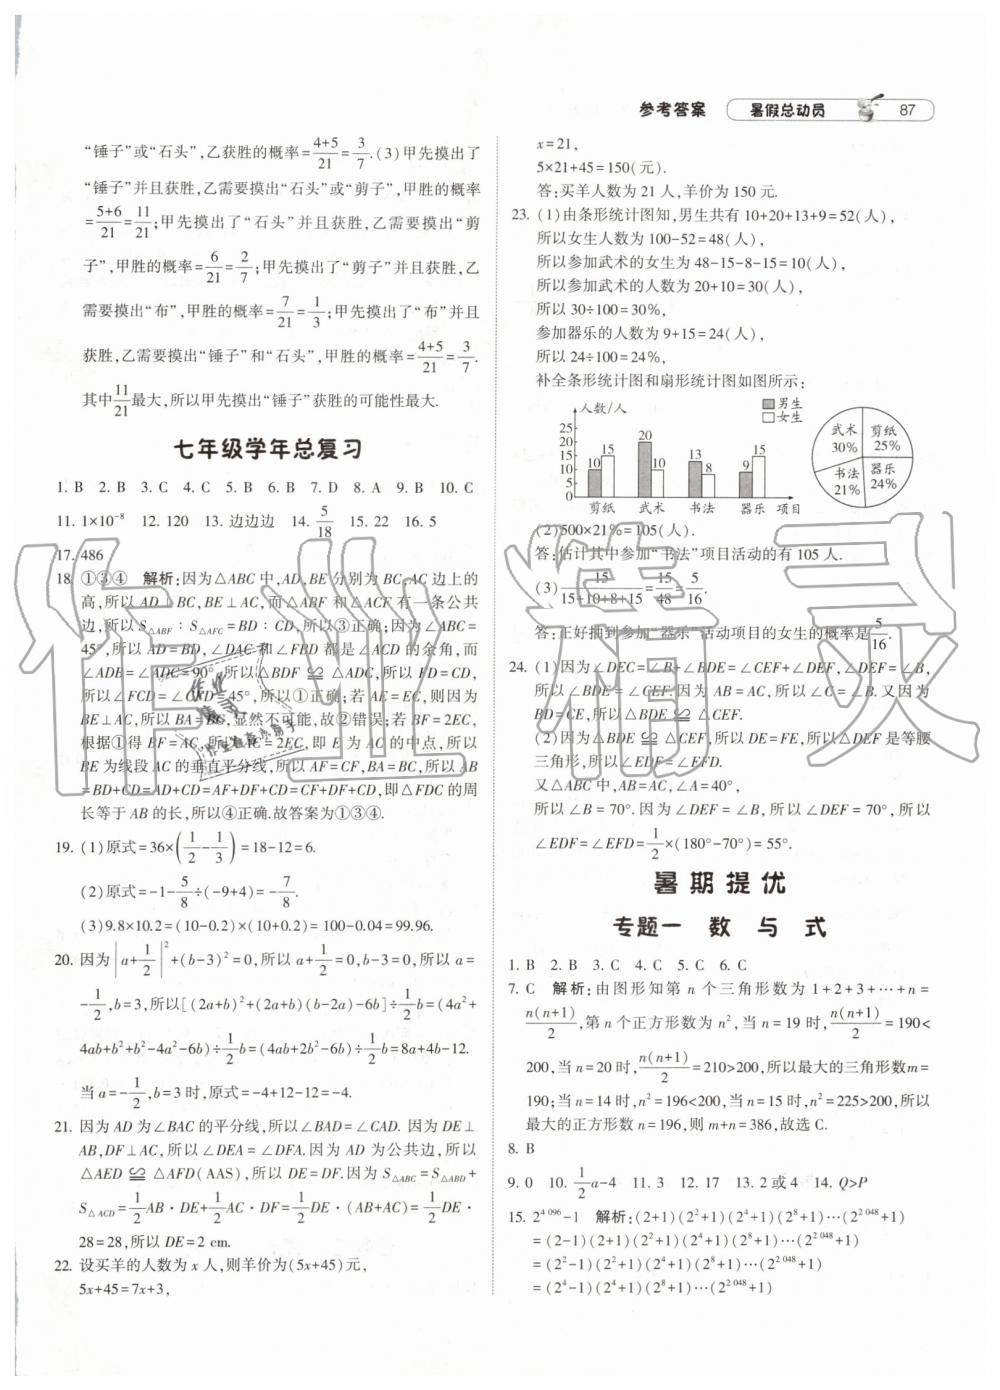 参考答案 暑假总动员 87
“锤子”或“石头”,乙获胜的概率=(4+5)/21=3/7.(3)甲先摸出了
“锤子”并且获胜,乙需要摸出“石头”或“剪子”,甲胜的概率
=(5+6)/21=11/21;甲先摸出了“石头”并且获胜,乙需要摸出“剪
子”,甲胜的概率=6/21=2/7;甲先摸出了“剪子”并且获胜,乙
需要摸出“布”,甲胜的概率=7/21=1/3;甲先摸出了“布”并且
获胜,乙需要摸出“锤子”和“石头”,甲胜的概率=(4+5)/21=3/7.
其中11/21最大,所以甲先摸出“锤子”获胜的可能性最大.
七年级学年总复习
1. B 2. B 3. C 4. C 5. B 6. B 7. D 8. A 9. B 10. C
11. 1×10⁻⁸ 12. 120 13. 边边边 14. 5/18 15. 22 16. 5
17. 486
18. ①③④ 解析:因为△ABC中,AD,BE分别为BC,AC边上的
高,所以AD⊥BC,BE⊥AC,而△ABF和△ACF有一条公共
边,所以S△ABF∶S△AFC=BD∶CD,所以③正确;因为∠ABC=
45°,所以AD=BD,∠DAC和∠FBD都是∠ACD的余角,而
∠ADB=∠ADC=90°,所以△BDF≌△ADC,所以FD=CD,
所以∠FCD=∠CFD=45°,所以①正确;若AE=EC,则因为
BE⊥AC,所以BA=BC,显然不可能,故②错误;若BF=2EC,
根据①得BF=AC,所以AC=2EC,即E为AC的中点,所以
BE为线段AC的垂直平分线,所以AF=CF,BA=BC,所以AB
=BD+CD=AD+CD=AF+DF+CD=CF+DF+CD,即△FDC的周
长等于AB的长,所以④正确.故答案为①③④.
19. (1)原式=36×(1/2-1/3)=18-12=6.
(2)原式=-1-5/8÷(-9+4)=-7/8.
(3)9.8×10.2=(10-0.2)×(10+0.2)=100-0.04=99.96.
20. 因为|a+1/2|²+(b-3)²=0,所以a+1/2=0,b-3=0,所以a=
-1/2,b=3,所以[(2a+b)²+(2a+b)(b-2a)-6b]÷1/2b=(4a²+
4ab+b²+b²-4a²-6b)÷1/2b=(4ab+2b²-6b)÷1/2b=8a+4b-12.
当a=-1/2,b=3时,原式=-4+12-12=-4.
21. 因为AD为∠BAC的平分线,所以∠BAD=∠CAD. 因为DE⊥
AB,DF⊥AC,所以∠DEA=∠DFA.因为AD为公共边,所以
△AED≌△AFD(AAS),所以DE=DF.因为S△ABC=S△ABD+
S△ACD=1/2AB·DE+1/2AC·DF=1/2DE·(AB+AC)=1/2DE·
28=28,所以DE=2 cm.
22. 设买羊的人数为x人,则羊价为(5x+45)元,
5x+45=7x+3,
x=21,
5×21+45=150(元).
答:买羊人数为21人,羊价为150元.
23. (1)由条形统计图知,男生共有10+20+13+9=52(人),
所以女生人数为100-52=48(人),
所以参加武术的女生为48-15-8-15=10(人),
所以参加武术的人数为20+10=30(人),
所以30÷100=30%,
参加器乐的人数为9+15=24(人),
所以24÷100=24%,
补全条形统计图和扇形统计图如图所示:
人数/人 男生 女生
25 20 15 10 5 0
10 15 20 10 13 8 9 15
剪纸 武术 书法 器乐 项目
武术 30% 剪纸 25%
书法 21% 器乐 24%
(2)500×21%=105(人).
答:估计其中参加“书法”项目活动的有105人.
(3)15/(15+10+8+15)=15/48=5/16.
答:正好抽到参加“器乐”活动项目的女生的概率是5/16.
24. (1)因为∠DEC=∠B+∠BDE=∠CEF+∠DEF,∠DEF=∠B,
所以∠BDE=∠CEF.因为AB=AC,所以∠C=∠B.又因为
BD=CE,所以△BDE≌△CEF.
(2)因为△BDE≌△CEF,所以DE=FE,所以△DEF是等腰
三角形,所以∠EDF=∠EFD.
又△ABC中,AB=AC,∠A=40°,
所以∠B=70°.因为∠DEF=∠B,所以∠DEF=70°,所以
∠EDF=∠EFD=1/2×(180°-70°)=55°.
暑期提优
专题一 数与式
1. B 2. B 3. C 4. C 5. C 6. C
7. C 解析:由图形知第n个三角形数为1+2+3+…+n=
n(n+1)/2,第n个正方形数为n²,当n=19时,n(n+1)/2=190<
200,当n=20时,n(n+1)/2=210>200,所以最大的三角形数m=
190;当n=14时,n²=196<200,当n=15时,n²=225>200,所以
最大的正方形数n=196,则m+n=386,故选C.
8. B
9. 0 10. 1/2a-4 11. 3 12. 17 13. 2或4 14. Q>P
15. 2⁴⁰⁹⁶-1 解析:(2+1)(2²+1)(2⁴+1)(2⁸+1)…(2²⁰⁴⁸+1)
=(2-1)(2+1)(2²+1)(2⁴+1)(2⁸+1)…(2²⁰⁴⁸+1)
=(2²-1)(2²+1)(2⁴+1)(2⁸+1)…(2²⁰⁴⁸+1)
=(2⁴-1)(2⁴+1)(2⁸+1)…(2²⁰⁴⁸+1)
作业精灵